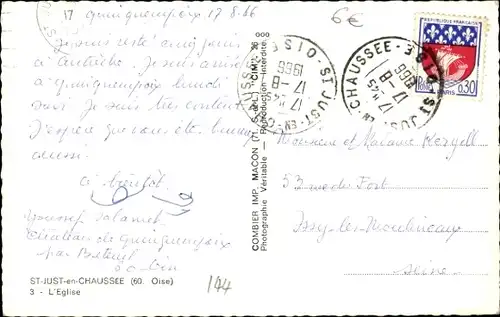 17
Quinquempoix 17 8.66
6€
Je suis resté cinq jours
à Antibes Je suis arrivé
à quinquempoix lundi
soir Je suis très content
J'espère que vous êtes
aussi.
à bientôt
Youssef
de Quinquempoix
par Breteuil
ST-JUST-en-CHAUSSEE (60. Oise)
3 - L'Eglise
144
COMBIER IMP. MACON (71. S.-&-L.) "CIM"
Photographie Véritable - Reproduction Interdite
ST JUST-EN-CHAUSSEE OISE
17 H 45
17-8
1966
ST JUST-EN-CHAUSSEE OISE
17 H 45
17-8
1966
REPUBLIQUE FRANÇAISE
POSTES
0,30
PARIS
Monsieur et Madame
53 rue du Fort
Issy-les-Moulineaux
Seine